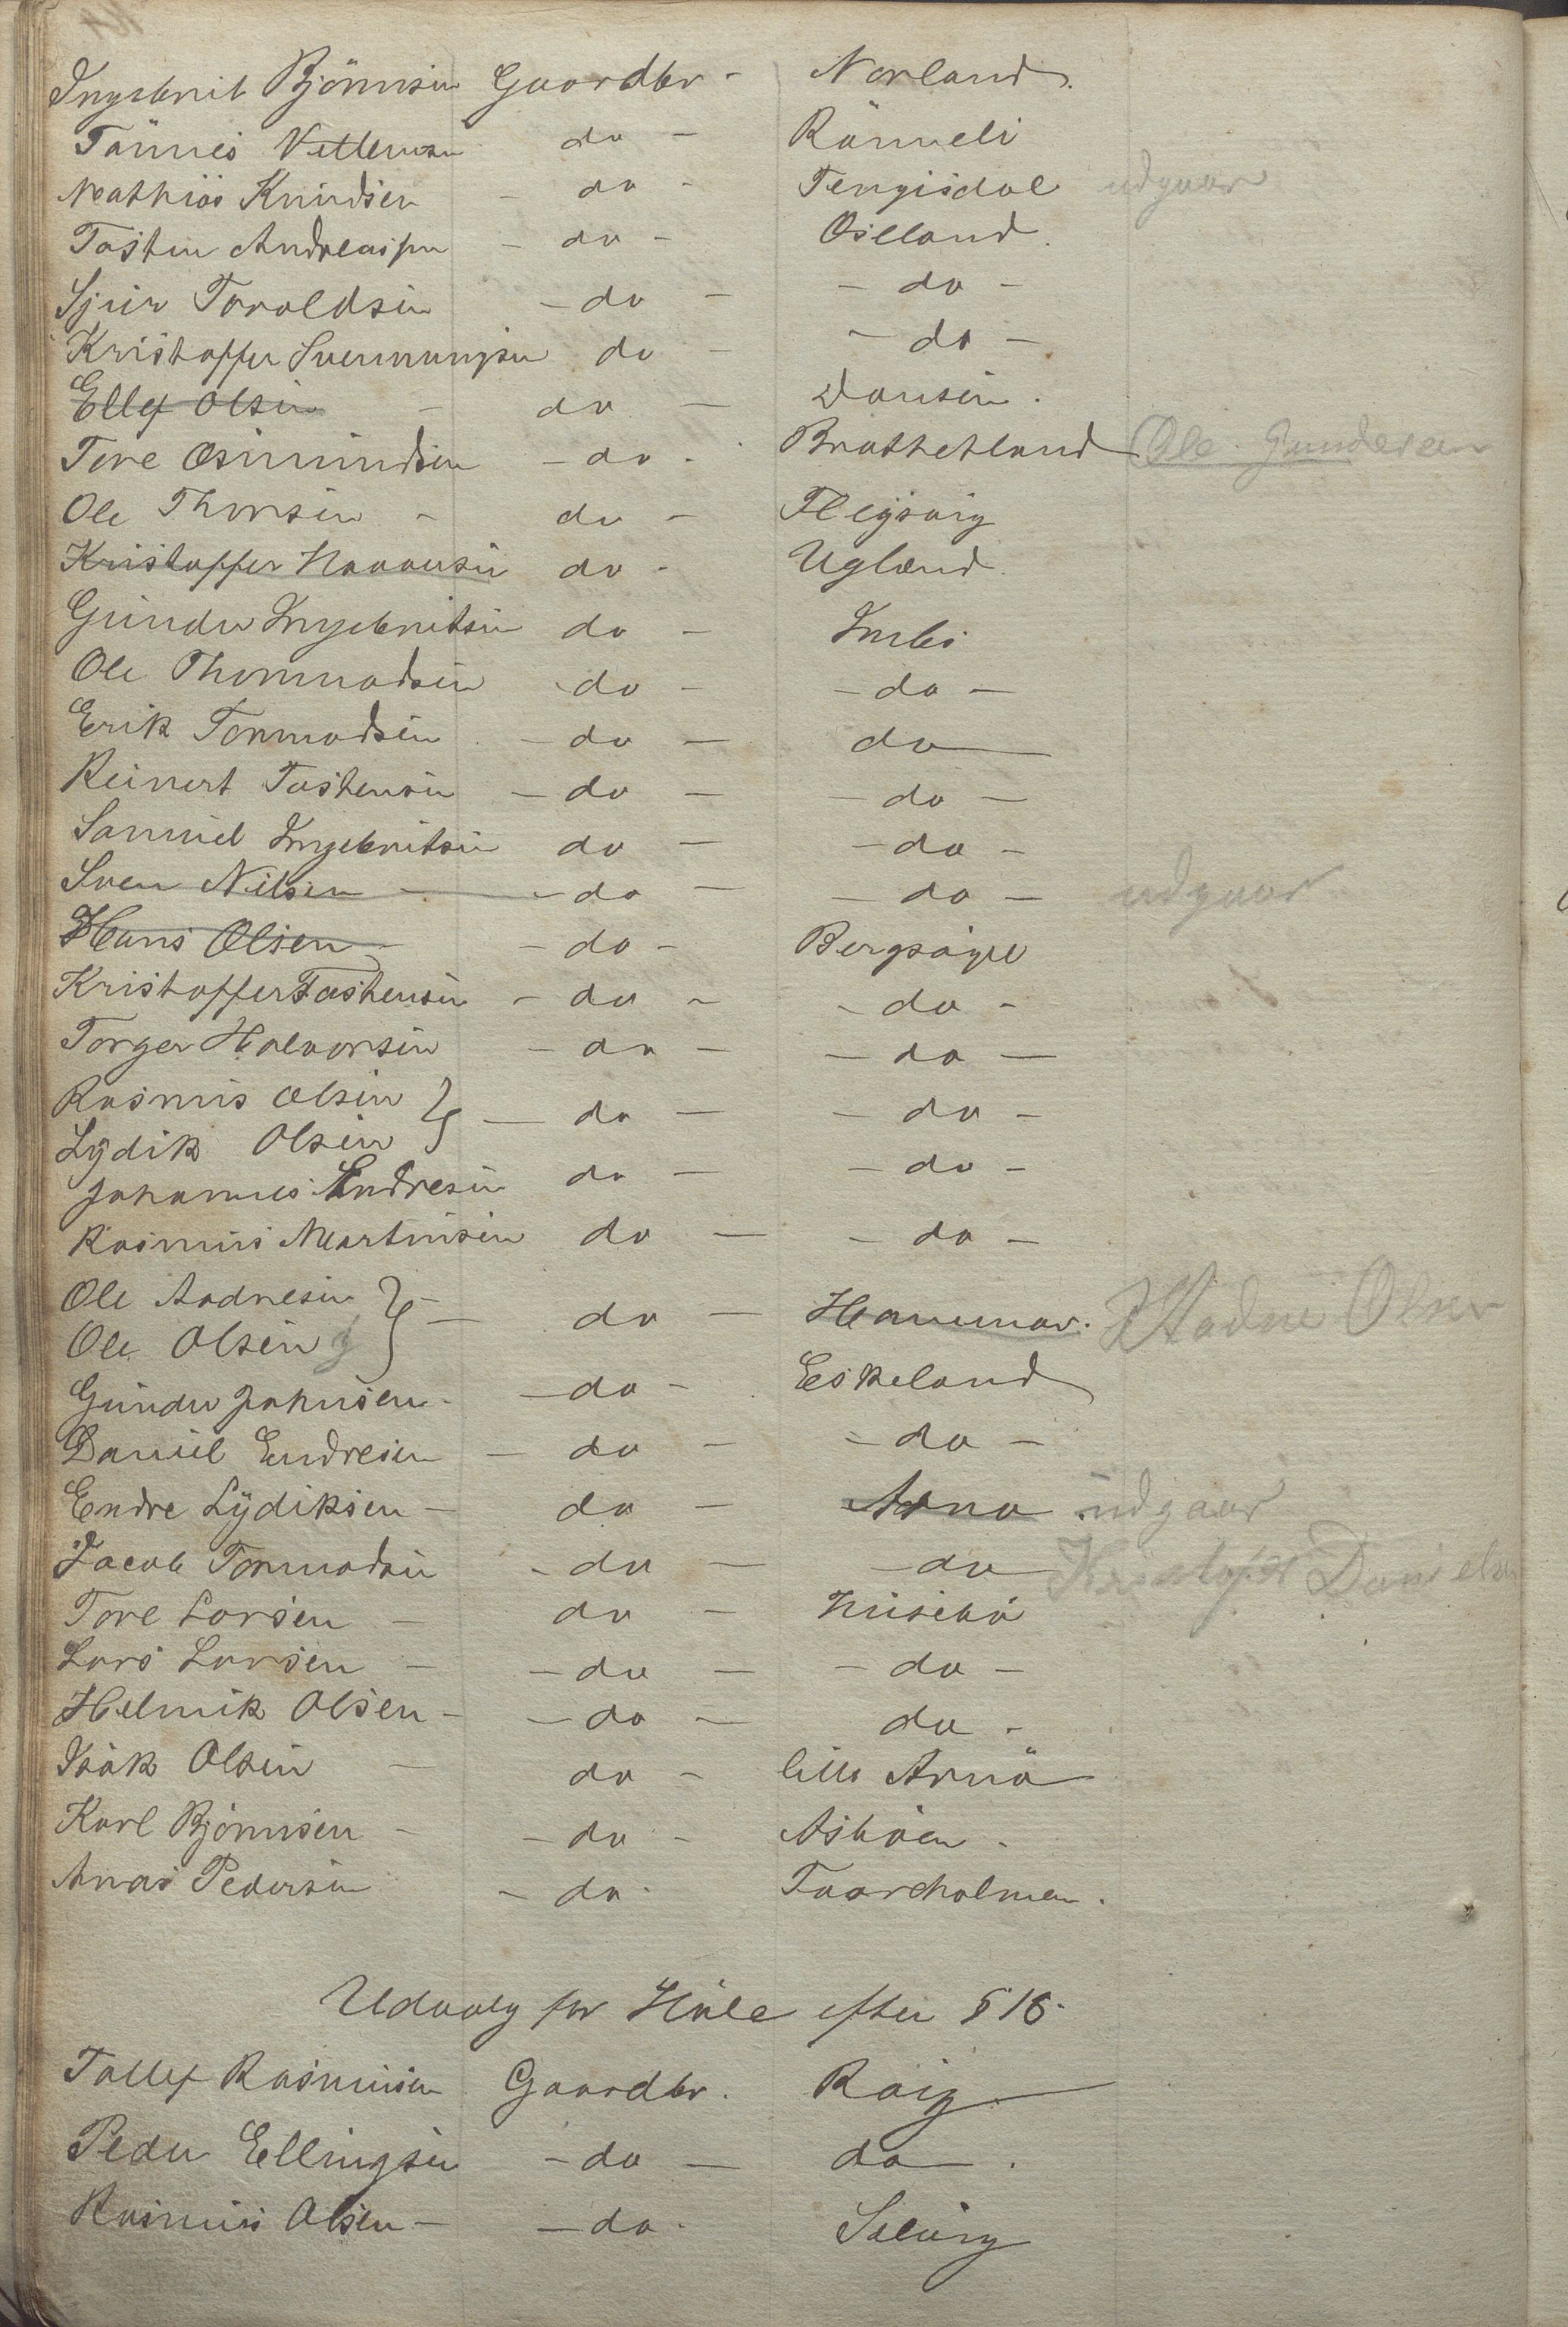 Ingebrit Björnsen Gaardbr - Norland.
Tönnes Vettemsen do - Rönneli
Mathias Knudsen - do - Tengisdal udgaar
Tosten Andreassen - do - Osland.
Sjur Toroldsen - do - - do -
Kristoffer Svennungsen do - - do -
Ellef Olsen - do - Dansen.
Tore Osmundsen - do - Brathetland Ole Gundersen
Ole Thorsen - do - Fleysvig
Kristoffer Haavarsen do - Ugland.
Gunder Ingebritsen do - Imbs
Ole Thormodsen do - - do -
Erik Tormodsen - do - do
Reinert Tostensen - do - - do -
Samuel Ingebritsen do - - do -
Sven Nilsen - - do - - do - udgaar
Hans Olsen - - do - Bergsagel
Kristoffer Tostensen - do - - do -
Torger Halvorsen - do - - do -
Rasmus Olsen } - do - - do -
Lydik Olsen
Johannes Endresen do - - do -
Rasmus Martinsen do - - do -
Ole Aadnesen } - do - Hammar. Aadne Olsen
Ole Olsen
Gunder Johnsen - - do - Eskeland
Daniel Endresen - do - - do -
Endre Lydiksen - do - Arna udgaar
Jacob Tormodsen - do - - do Kristofer Danielsen
Tore Larsen - do - Husebö
Lars Larsen - - do - - do -
Helmik Olsen - - do - do -
Isak Olsen - do - lille Arnö
Karl Björnsen - - do - Asköen -
Anas Pedersen - do - Fooreholmen.
Udvalg for Höle efter § 16.
Tollef Rasmusen Gaardbr. Röig
Peder Ellingsen - do - do.
Rasmus Olsen - - do. Selvig